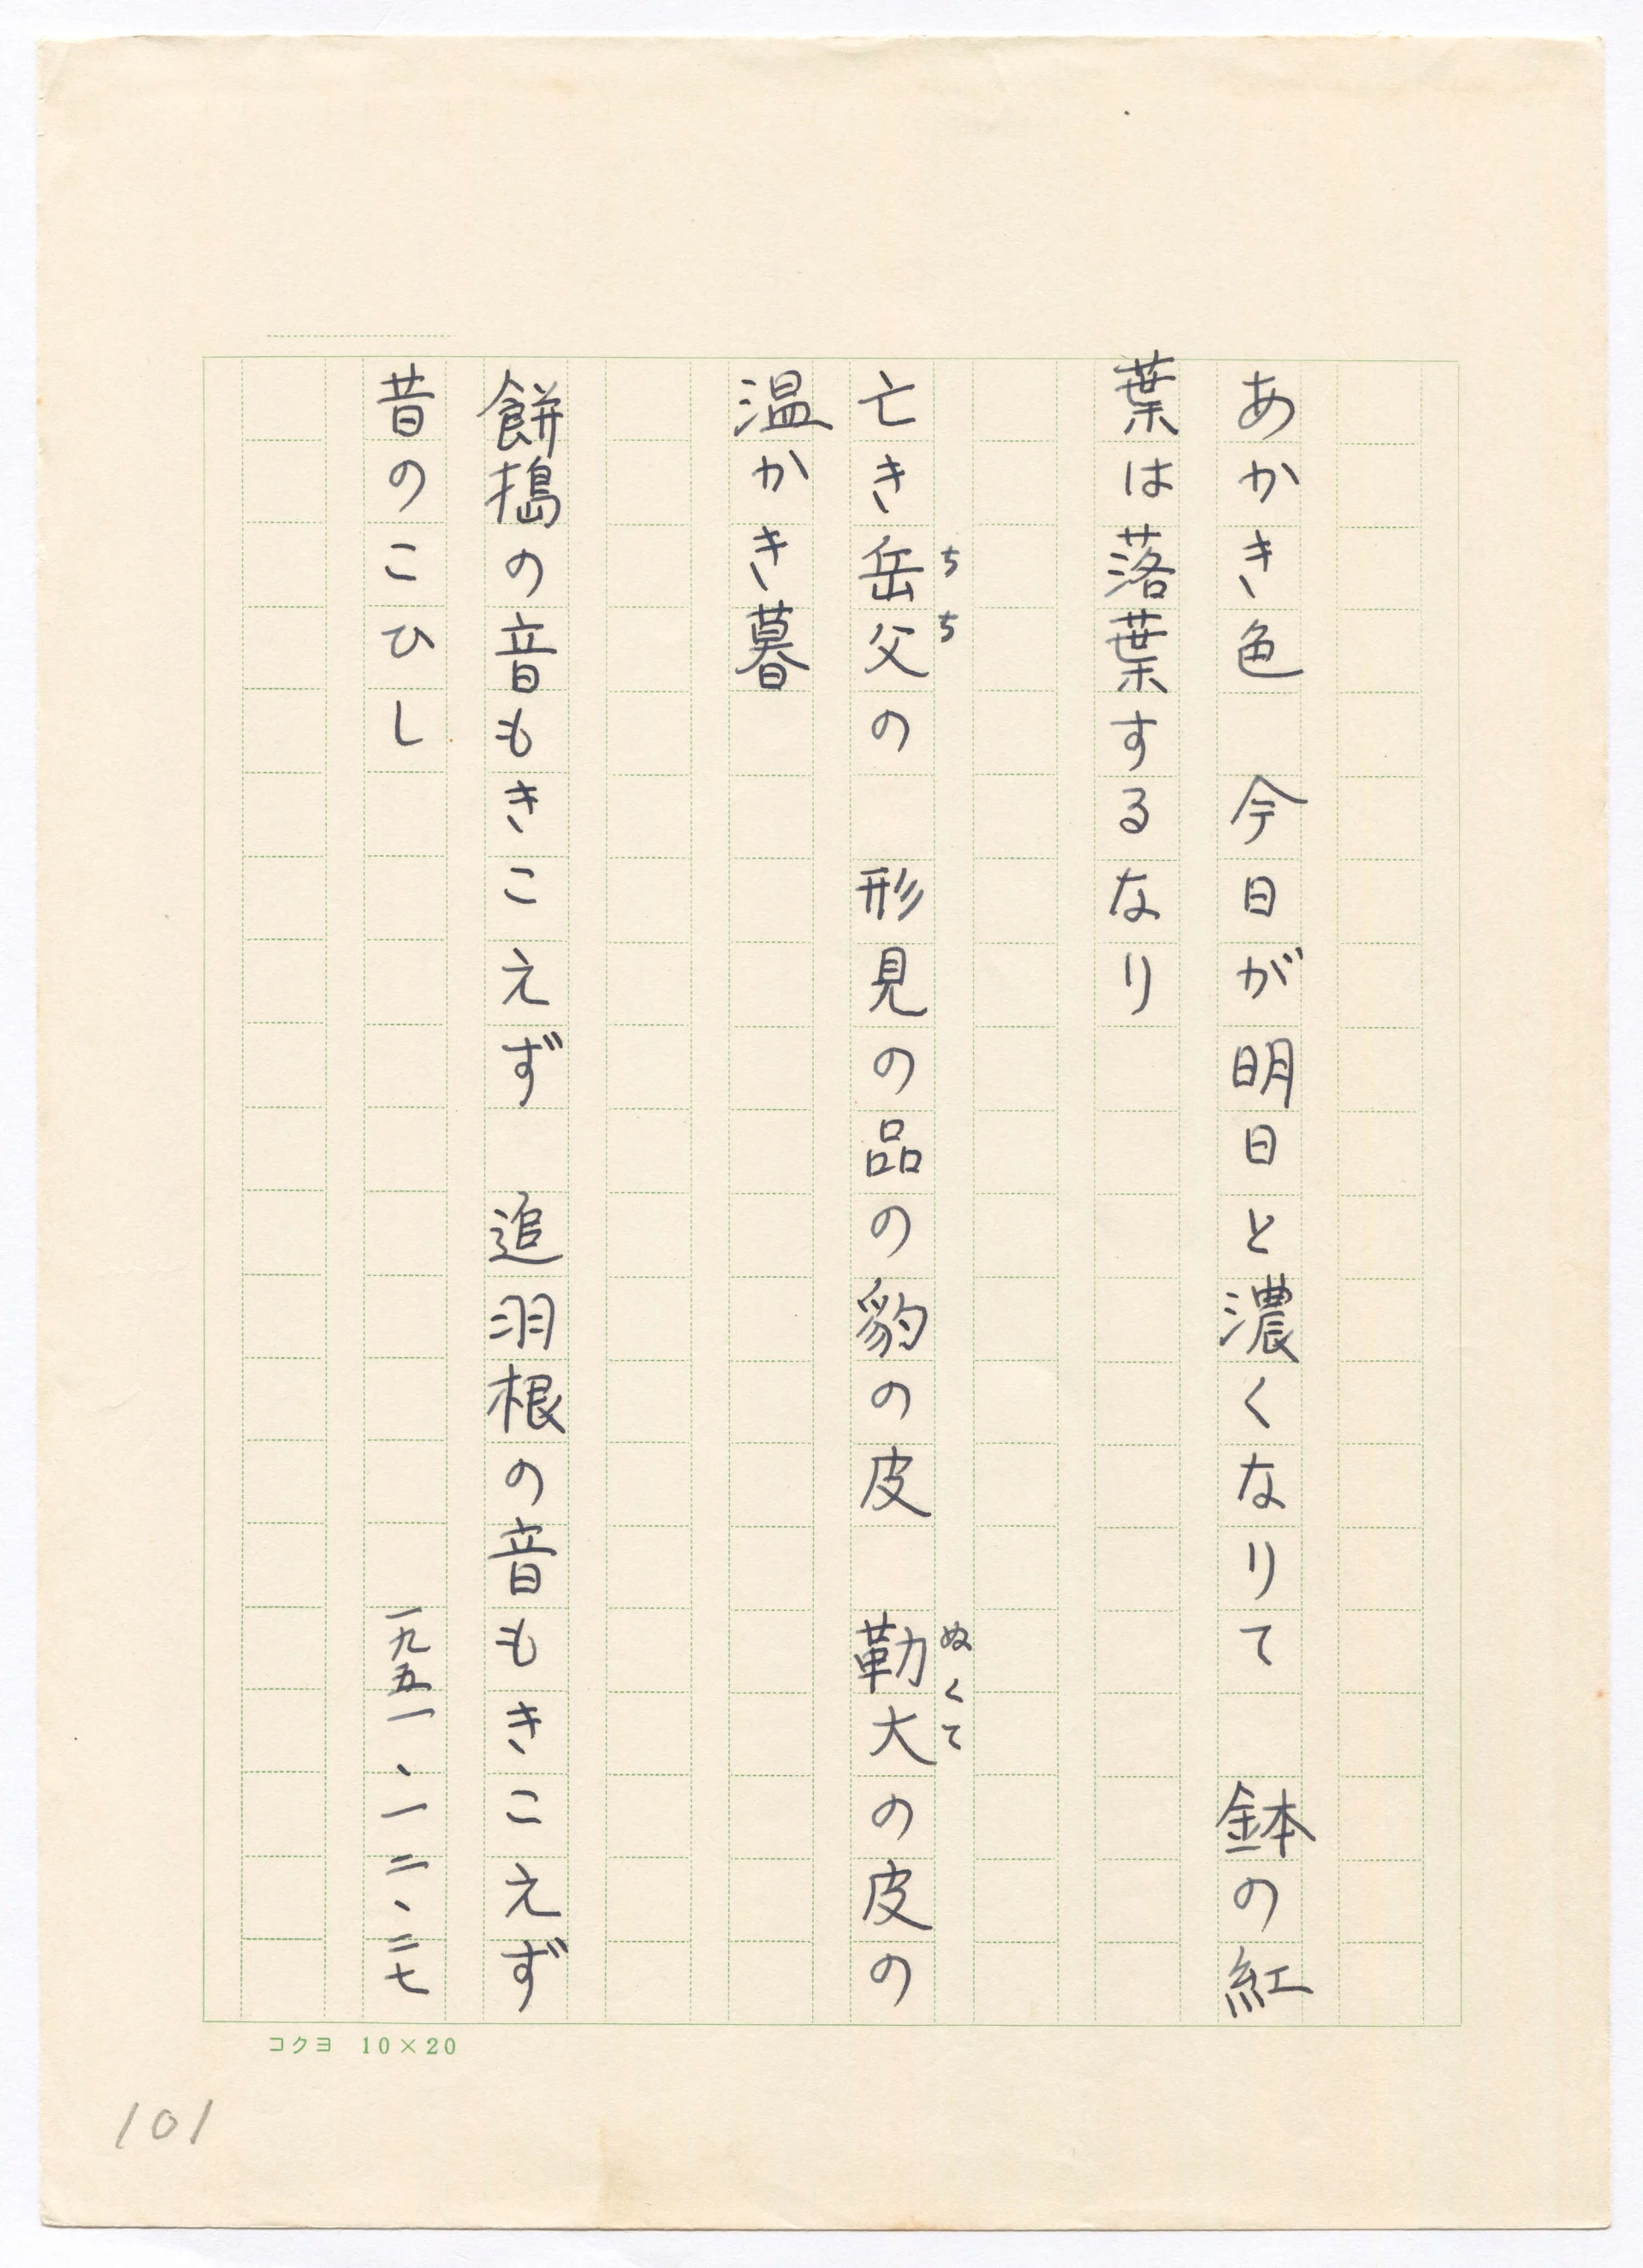 あかき色　今日が明日と濃くなりて　鉢の紅
葉は落葉するなり
亡き岳父の　形見の品の豹の皮　勒大の皮の
ちち
ぬくて
温かき暮
餅搗の音もきこえず　追羽根の音もきこえず
昔のこひし
一九五一、一二、二七
コクヨ 10×20
101